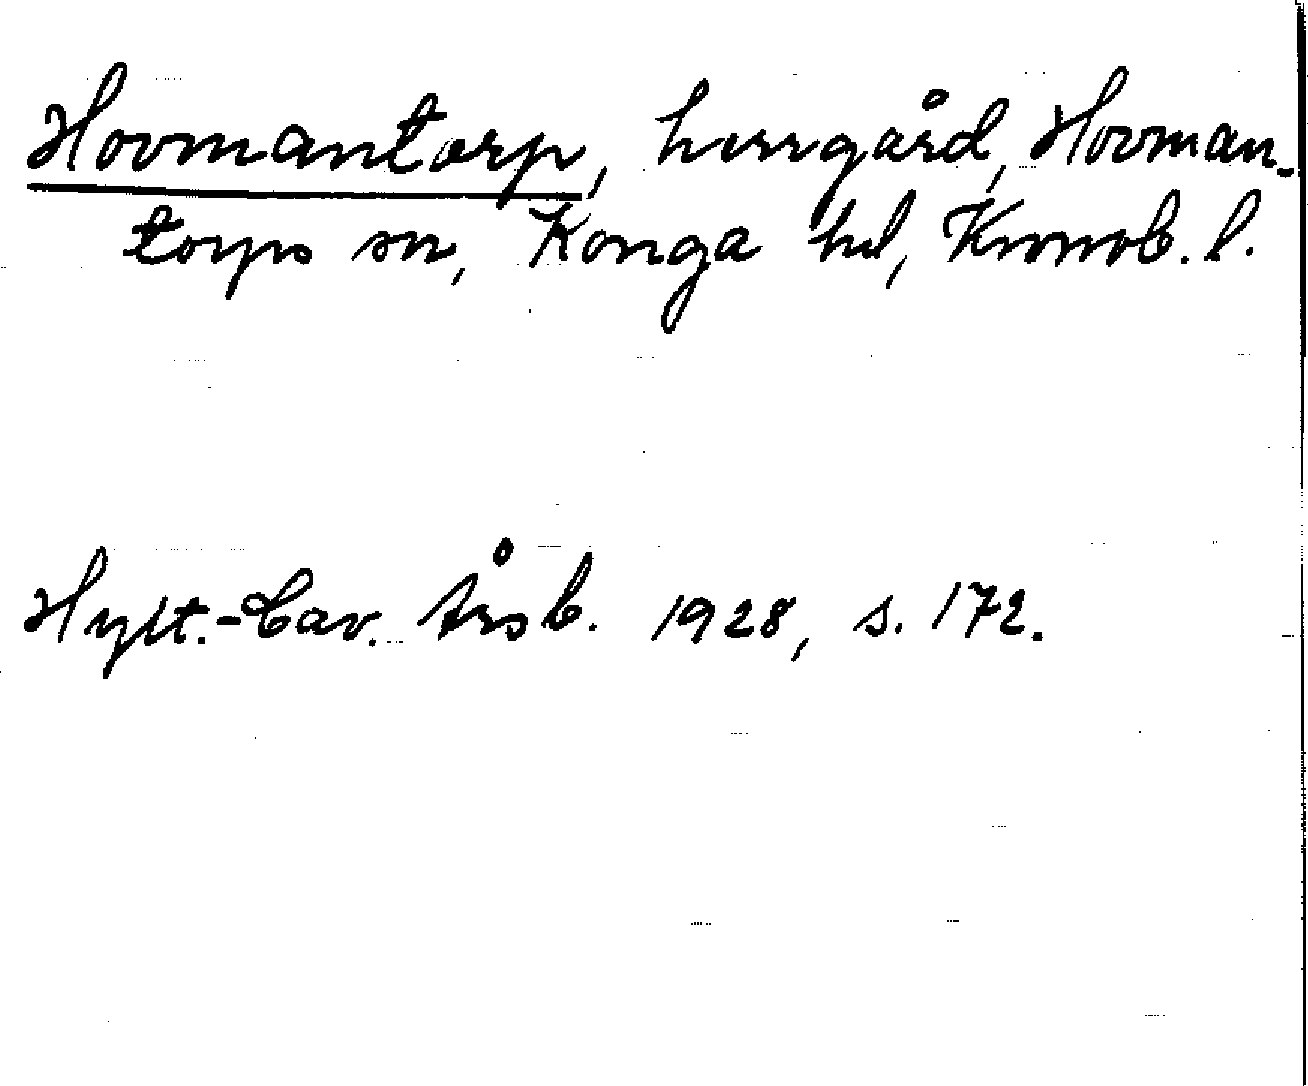 Hovmantorp, herrgård, Hovman-
torps sn, Konga hd, Kronob. l.
Hylt.-Cav. Årsb. 1928, s. 172.